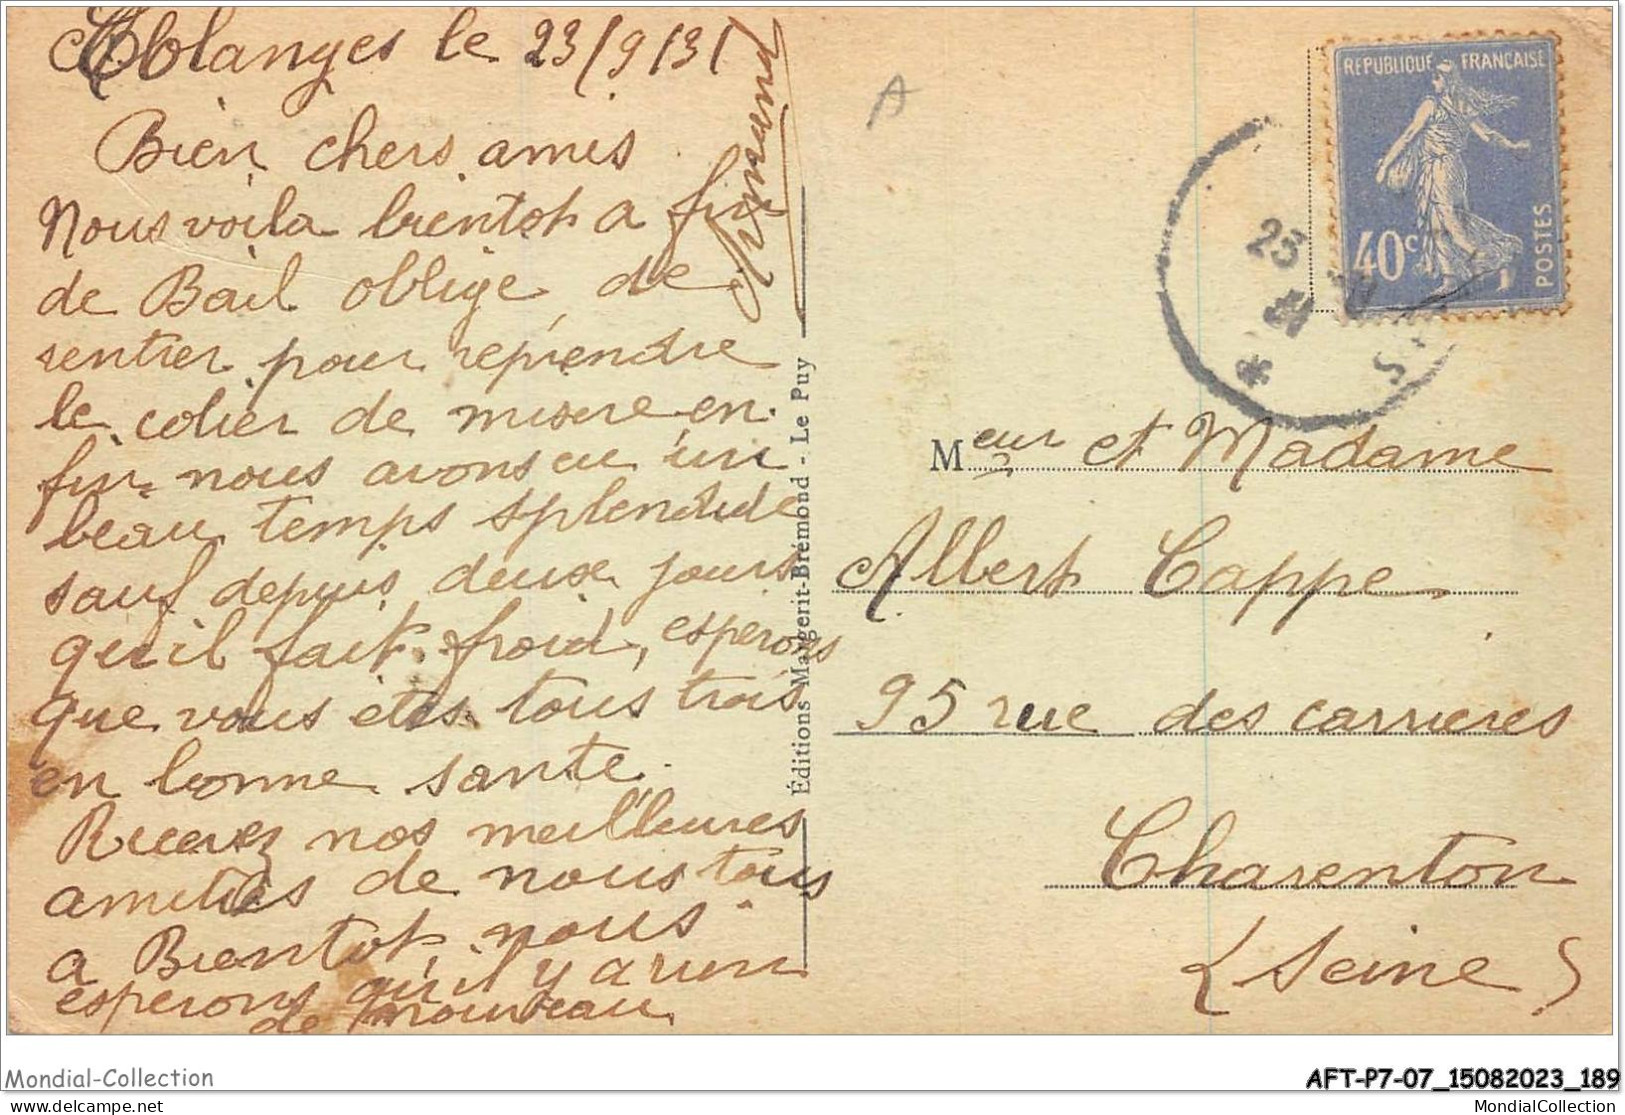 Ablanges le 23/9/31
Bien chers amis
Nous voila bientot a fin
de Bail oblige de
rentrer pour reprendre
le colier de misere en
fin nous avons eu un
beau temps splendide
sauf depuis deux jours
qu'il fait froid, esperons
que vous etes tous trois
en bonne sante.
Recevez nos meilleures
amities de nous tous
a Bientot, nous
esperons qu'il y a rien
de nouveau
Éditions Margerit-Brémond - Le Puy
A
REPUBLIQUE FRANÇAISE
40c
POSTES
23
31
Meur et Madame
Albert Cappe
95 rue des carrieres
Charenton
(Seine)
Mondial-Collection
AFT-P7-07_15082023_189
delcampe.net
MondialCollection